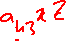 a₄₃xz